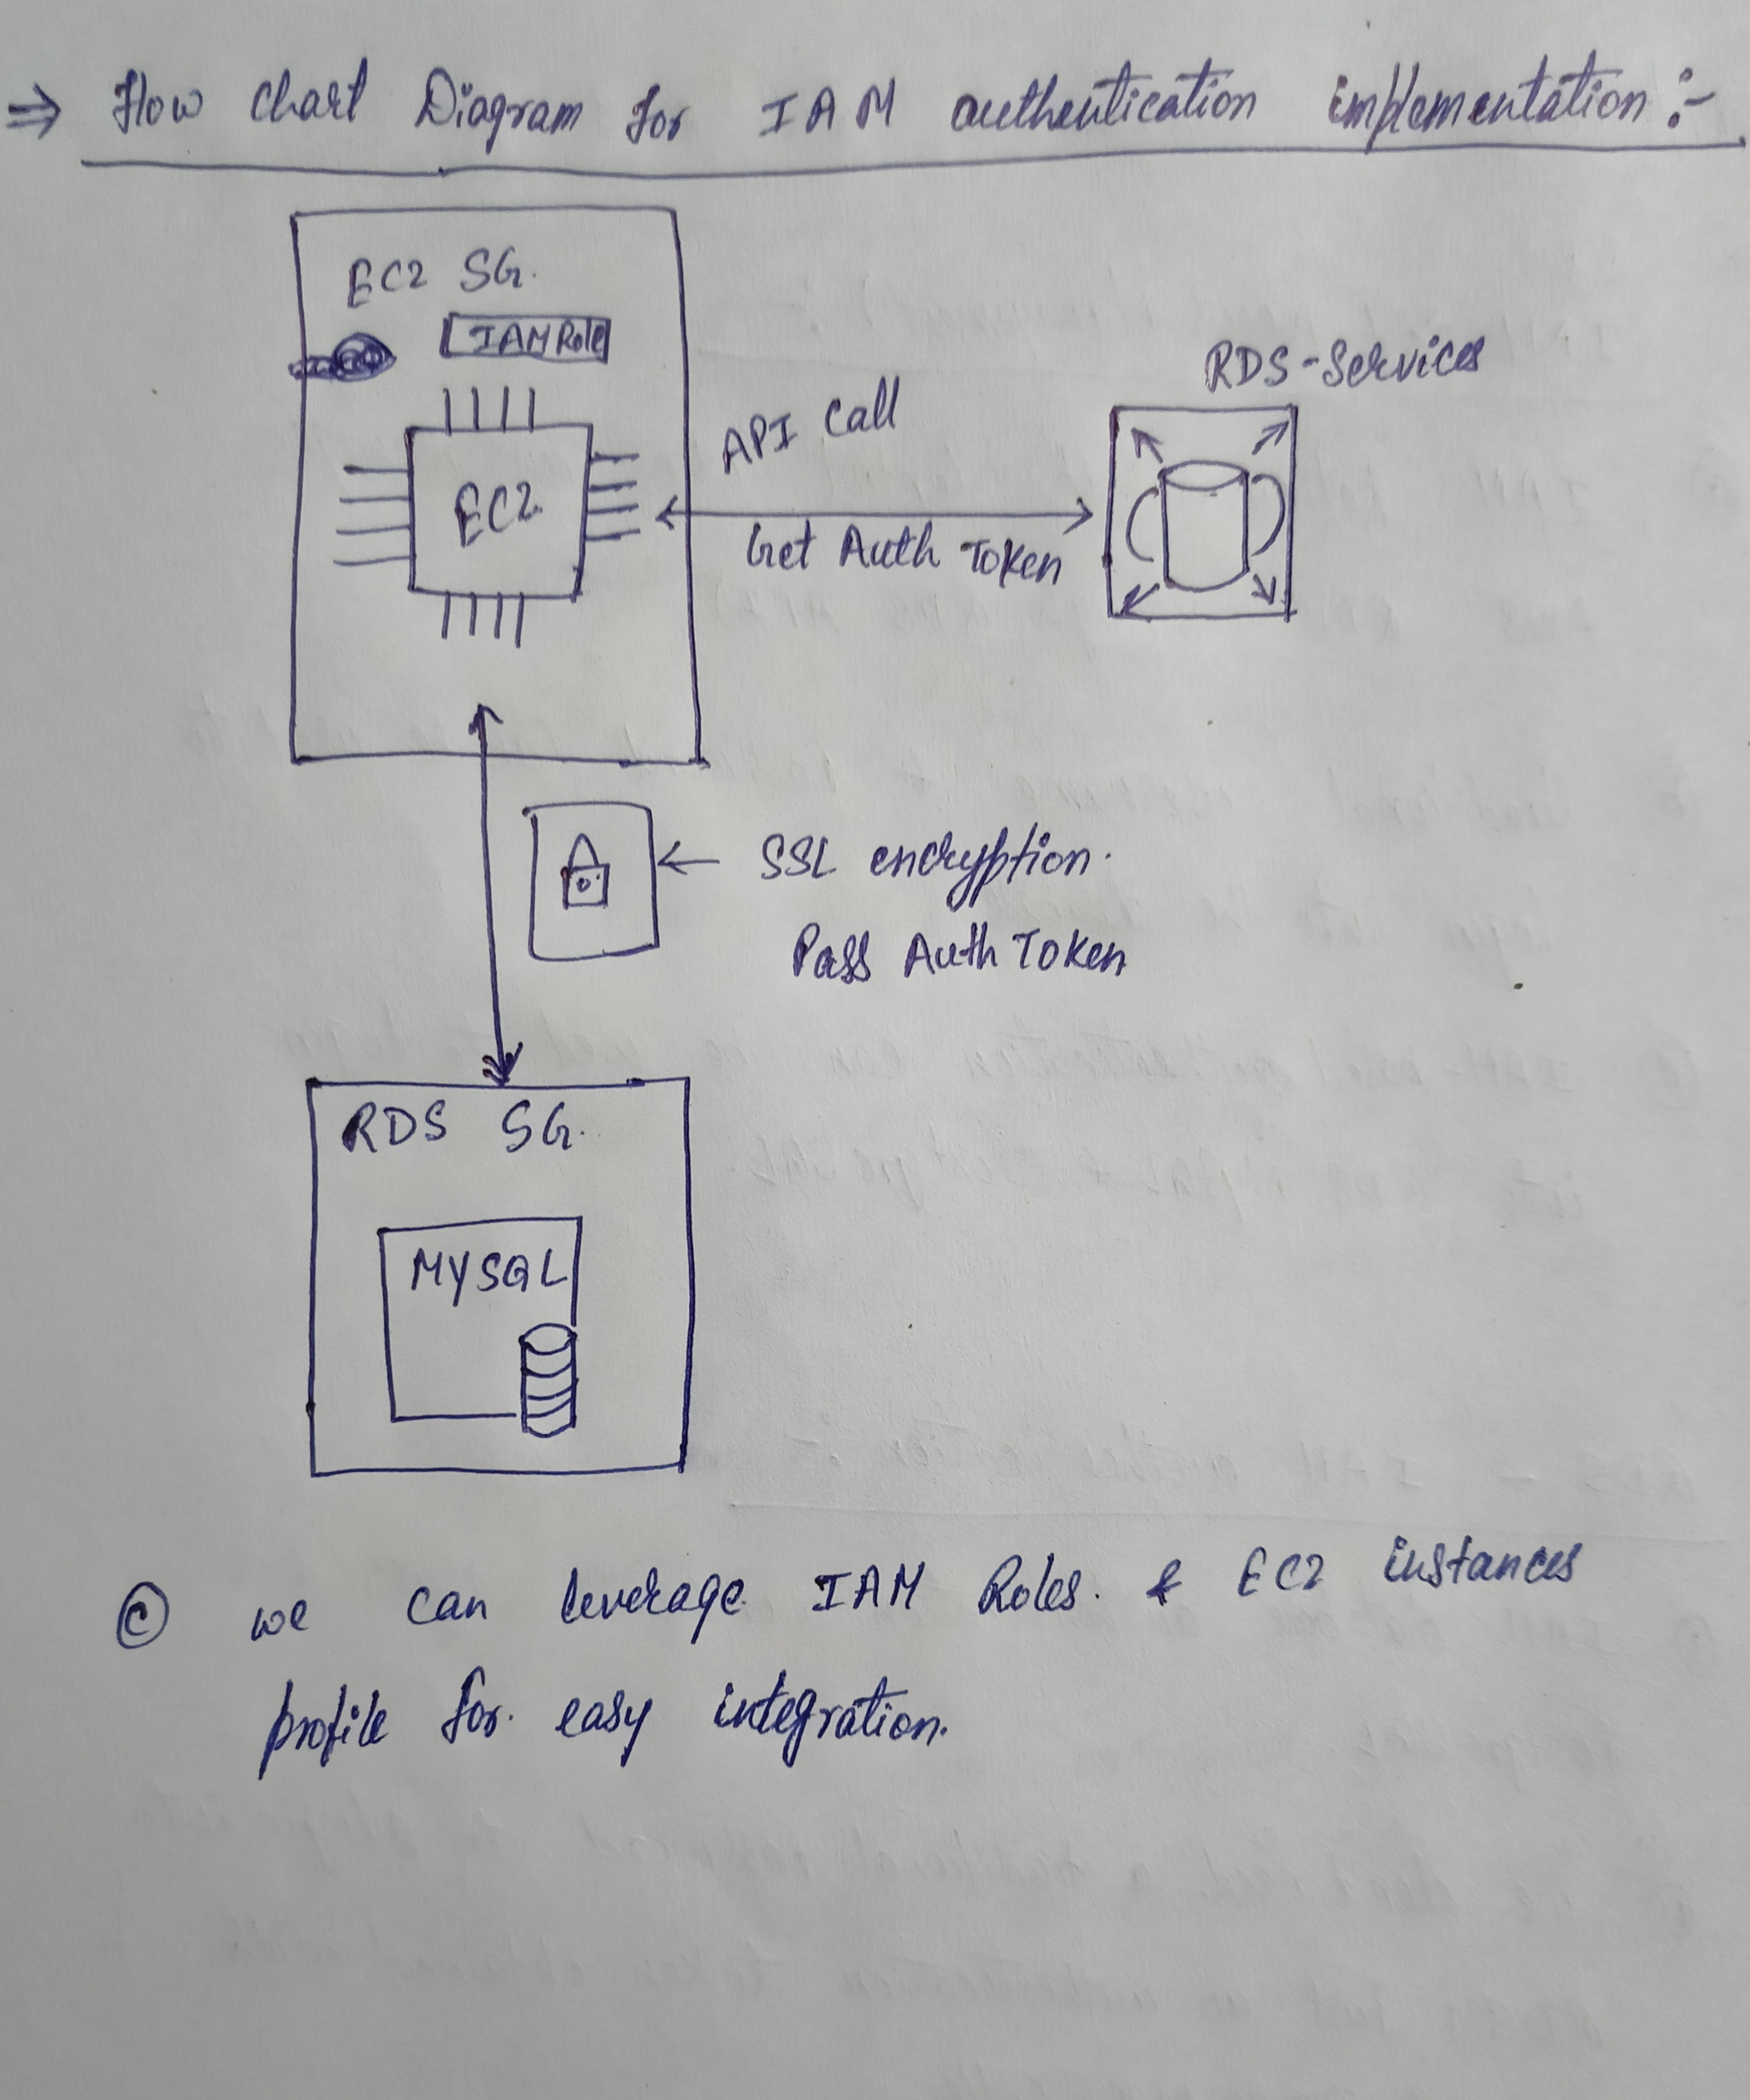 ⇒ Flow chart Diagram for IAM authentication implementation :-
EC2 SG.
IAM Role
EC2
API Call
Get Auth Token
RDS-Services
SSL encryption.
Pass Auth Token
RDS SG.
MYSQL
© we can leverage IAM Roles. & EC2 instances
profile for. easy integration.